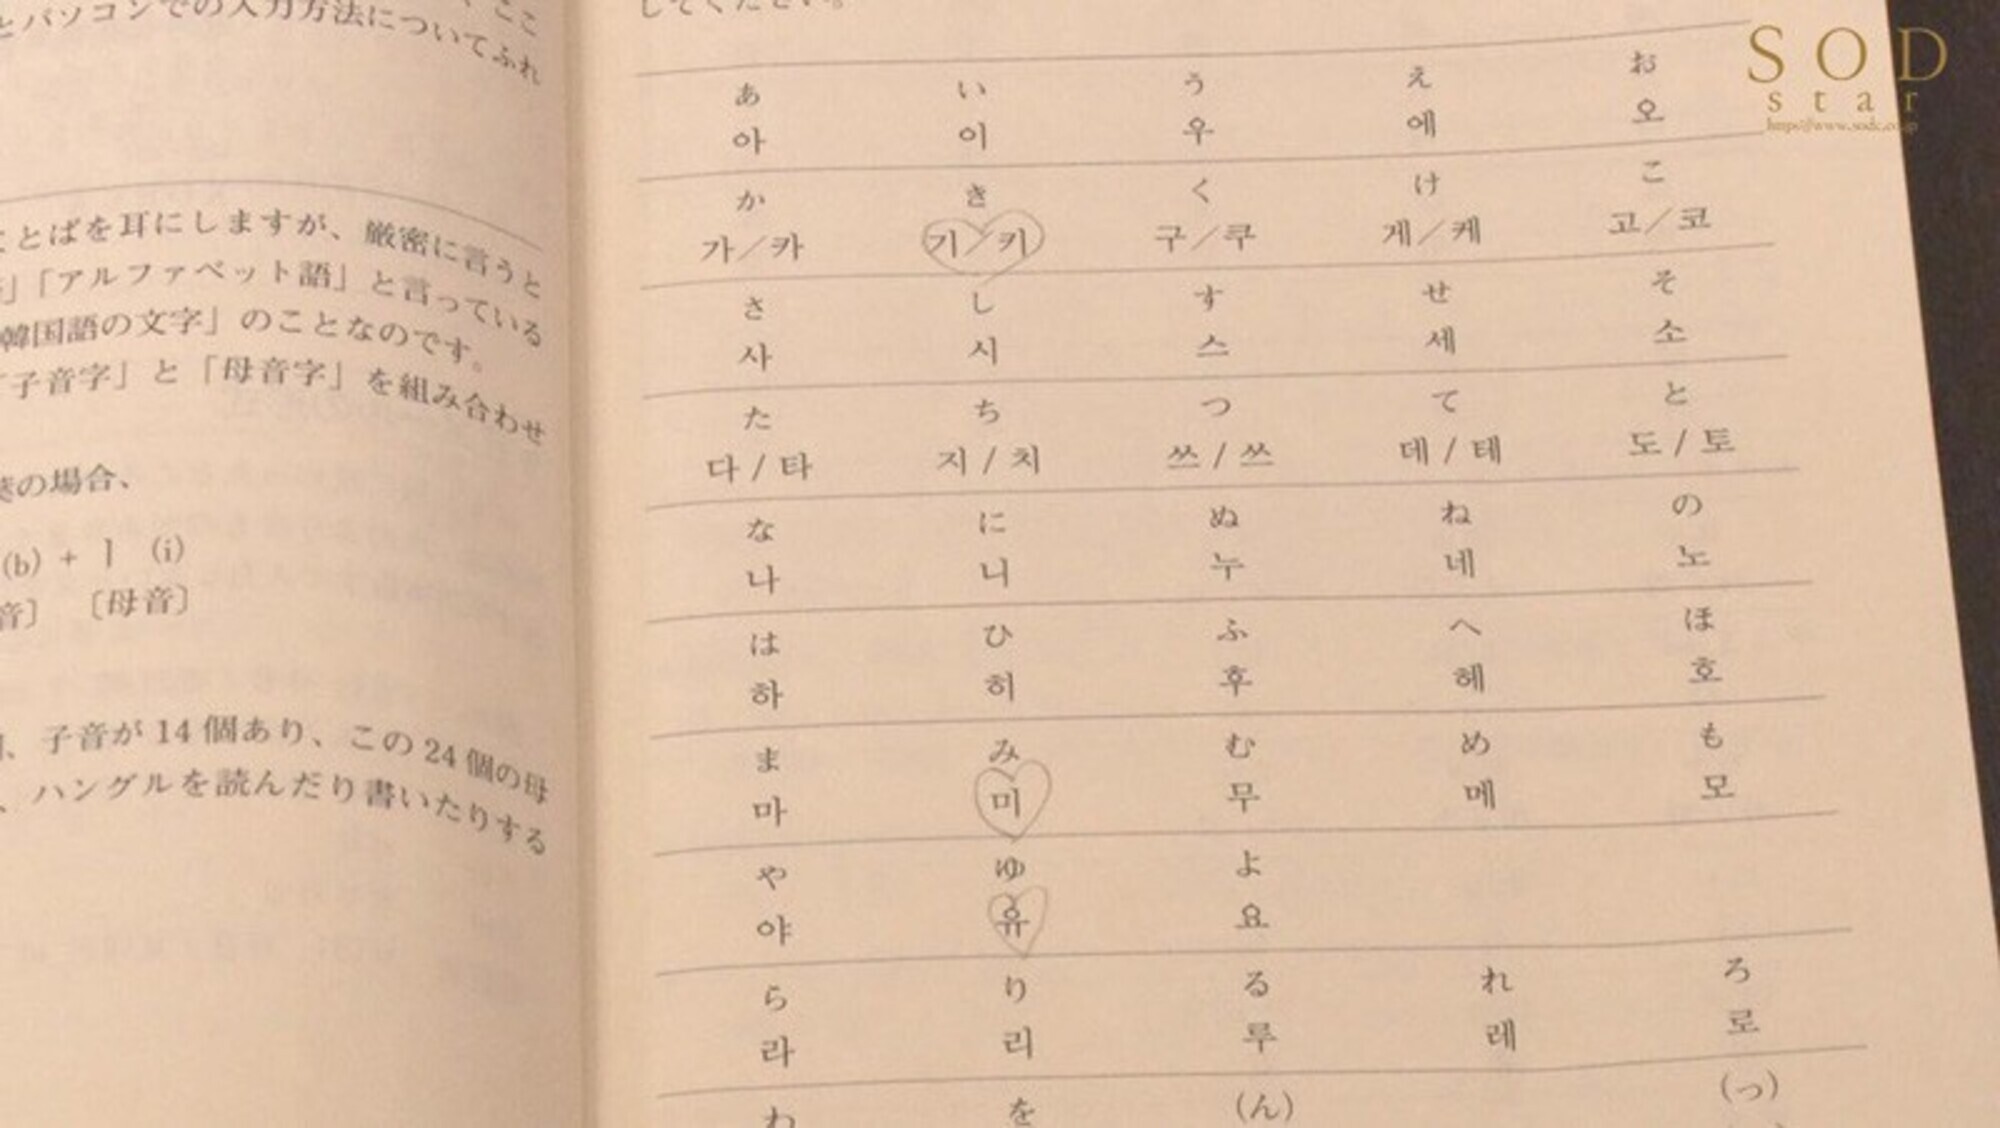 とパソコンでの入力方法についてふれ
ことばを耳にしますが、厳密に言うと
」「アルファベット語」と言っている
韓国語の文字」のことなのです。
「子音字」と「母音字」を組み合わせ
葉の場合、
(b) + ㅣ (i)
音〕 〔母音〕
、子音が 14 個あり、この 24 個の母
、ハングルを読んだり書いたりする
してください。
あ い う え お
아 이 우 에 오
か き く け こ
가/카 기/키 구/쿠 게/케 고/코
さ し す せ そ
사 시 스 세 소
た ち つ て と
다/타 지/치 쓰/쓰 데/테 도/토
な に ぬ ね の
나 니 누 네 노
は ひ ふ へ ほ
하 히 후 헤 호
ま み む め も
마 미 무 메 모
や ゆ よ
야 유 요
ら り る れ ろ
라 리 루 레 로
わ を (ん) (っ)
SOD
star
https://www.sodc.co.jp